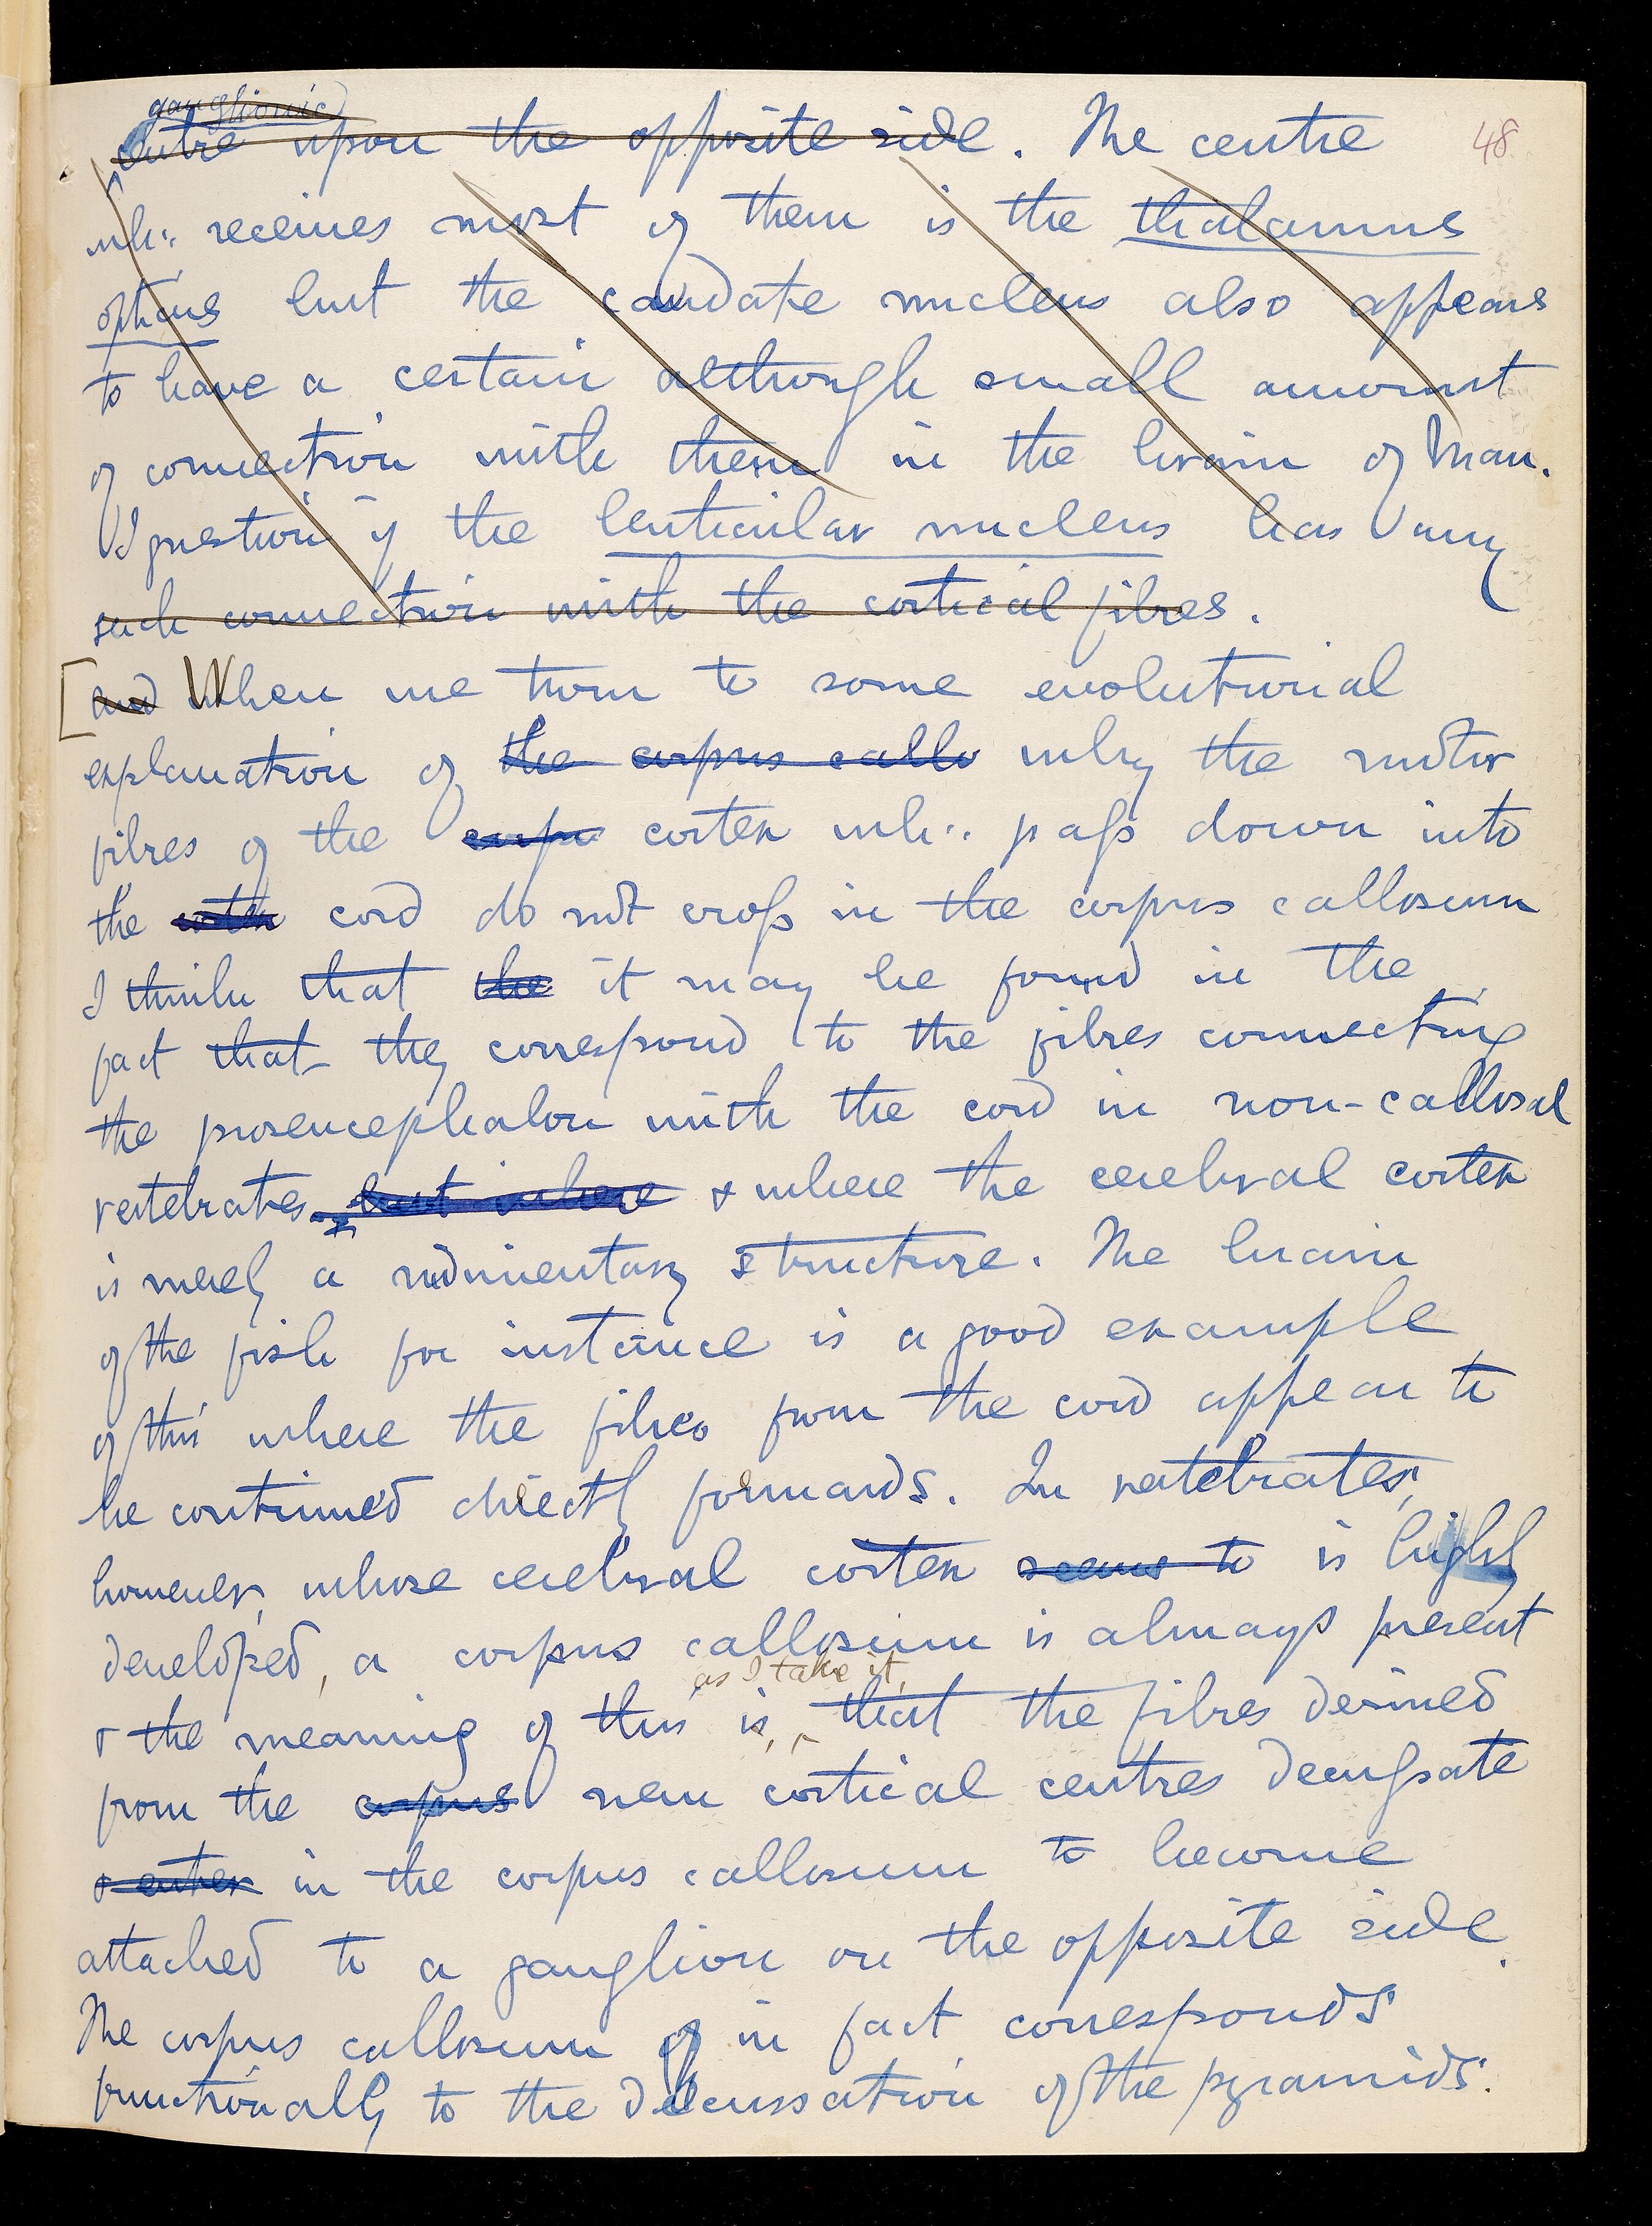 ganglionic
centre upon the opposite side. The centre 48
wh:. receives most of them is the thalamus
opticus but the caudate nucleus also appears
to have a certain although small amount
of connection with them in the brain of Man.
I question if the lenticular nucleus has any
such connection with the cortical fibres.
[and When we turn to some evolutional
explanation of the corpus callo why the motor
fibres of the corpu cortex wh:. pass down into
the cortex cord do not cross in the corpus callosum
I think that the it may be found in the
fact that they correspond to the fibres connecting
the prosencephalon with the cord in non-callosal
vertebrates but where & where the cerebral cortex
is merely a rudimentary structure. The brain
of the fish for instance is a good example
of this where the fibres from the cord appear to
be continued directly forwards. In vertebrates,
however, whose cerebral cortex seems to is highly
developed, a corpus callosum is always present
as I take it,
& the meaning of this is, that the fibres derived
from the corpus new cortical centres decussate
& enter in the corpus callosum to become
attached to a ganglion on the opposite side.
The corpus callosum of in fact corresponds
functionally to the decussation of the pyramids.